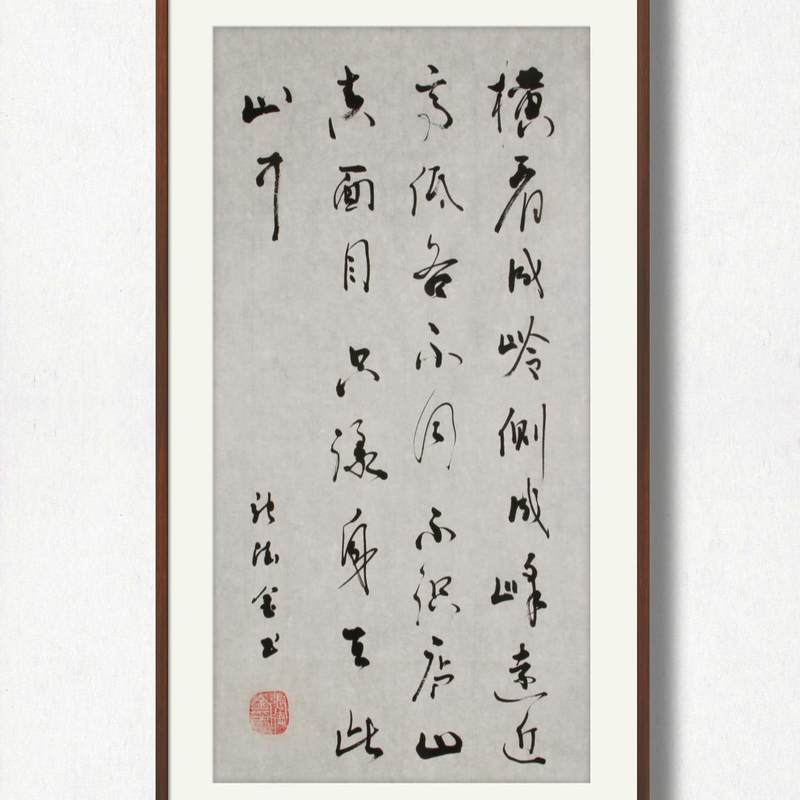 横看成岭侧成峰遠近
高低各不同不识庐山
真面目只缘身在此
山中
金书